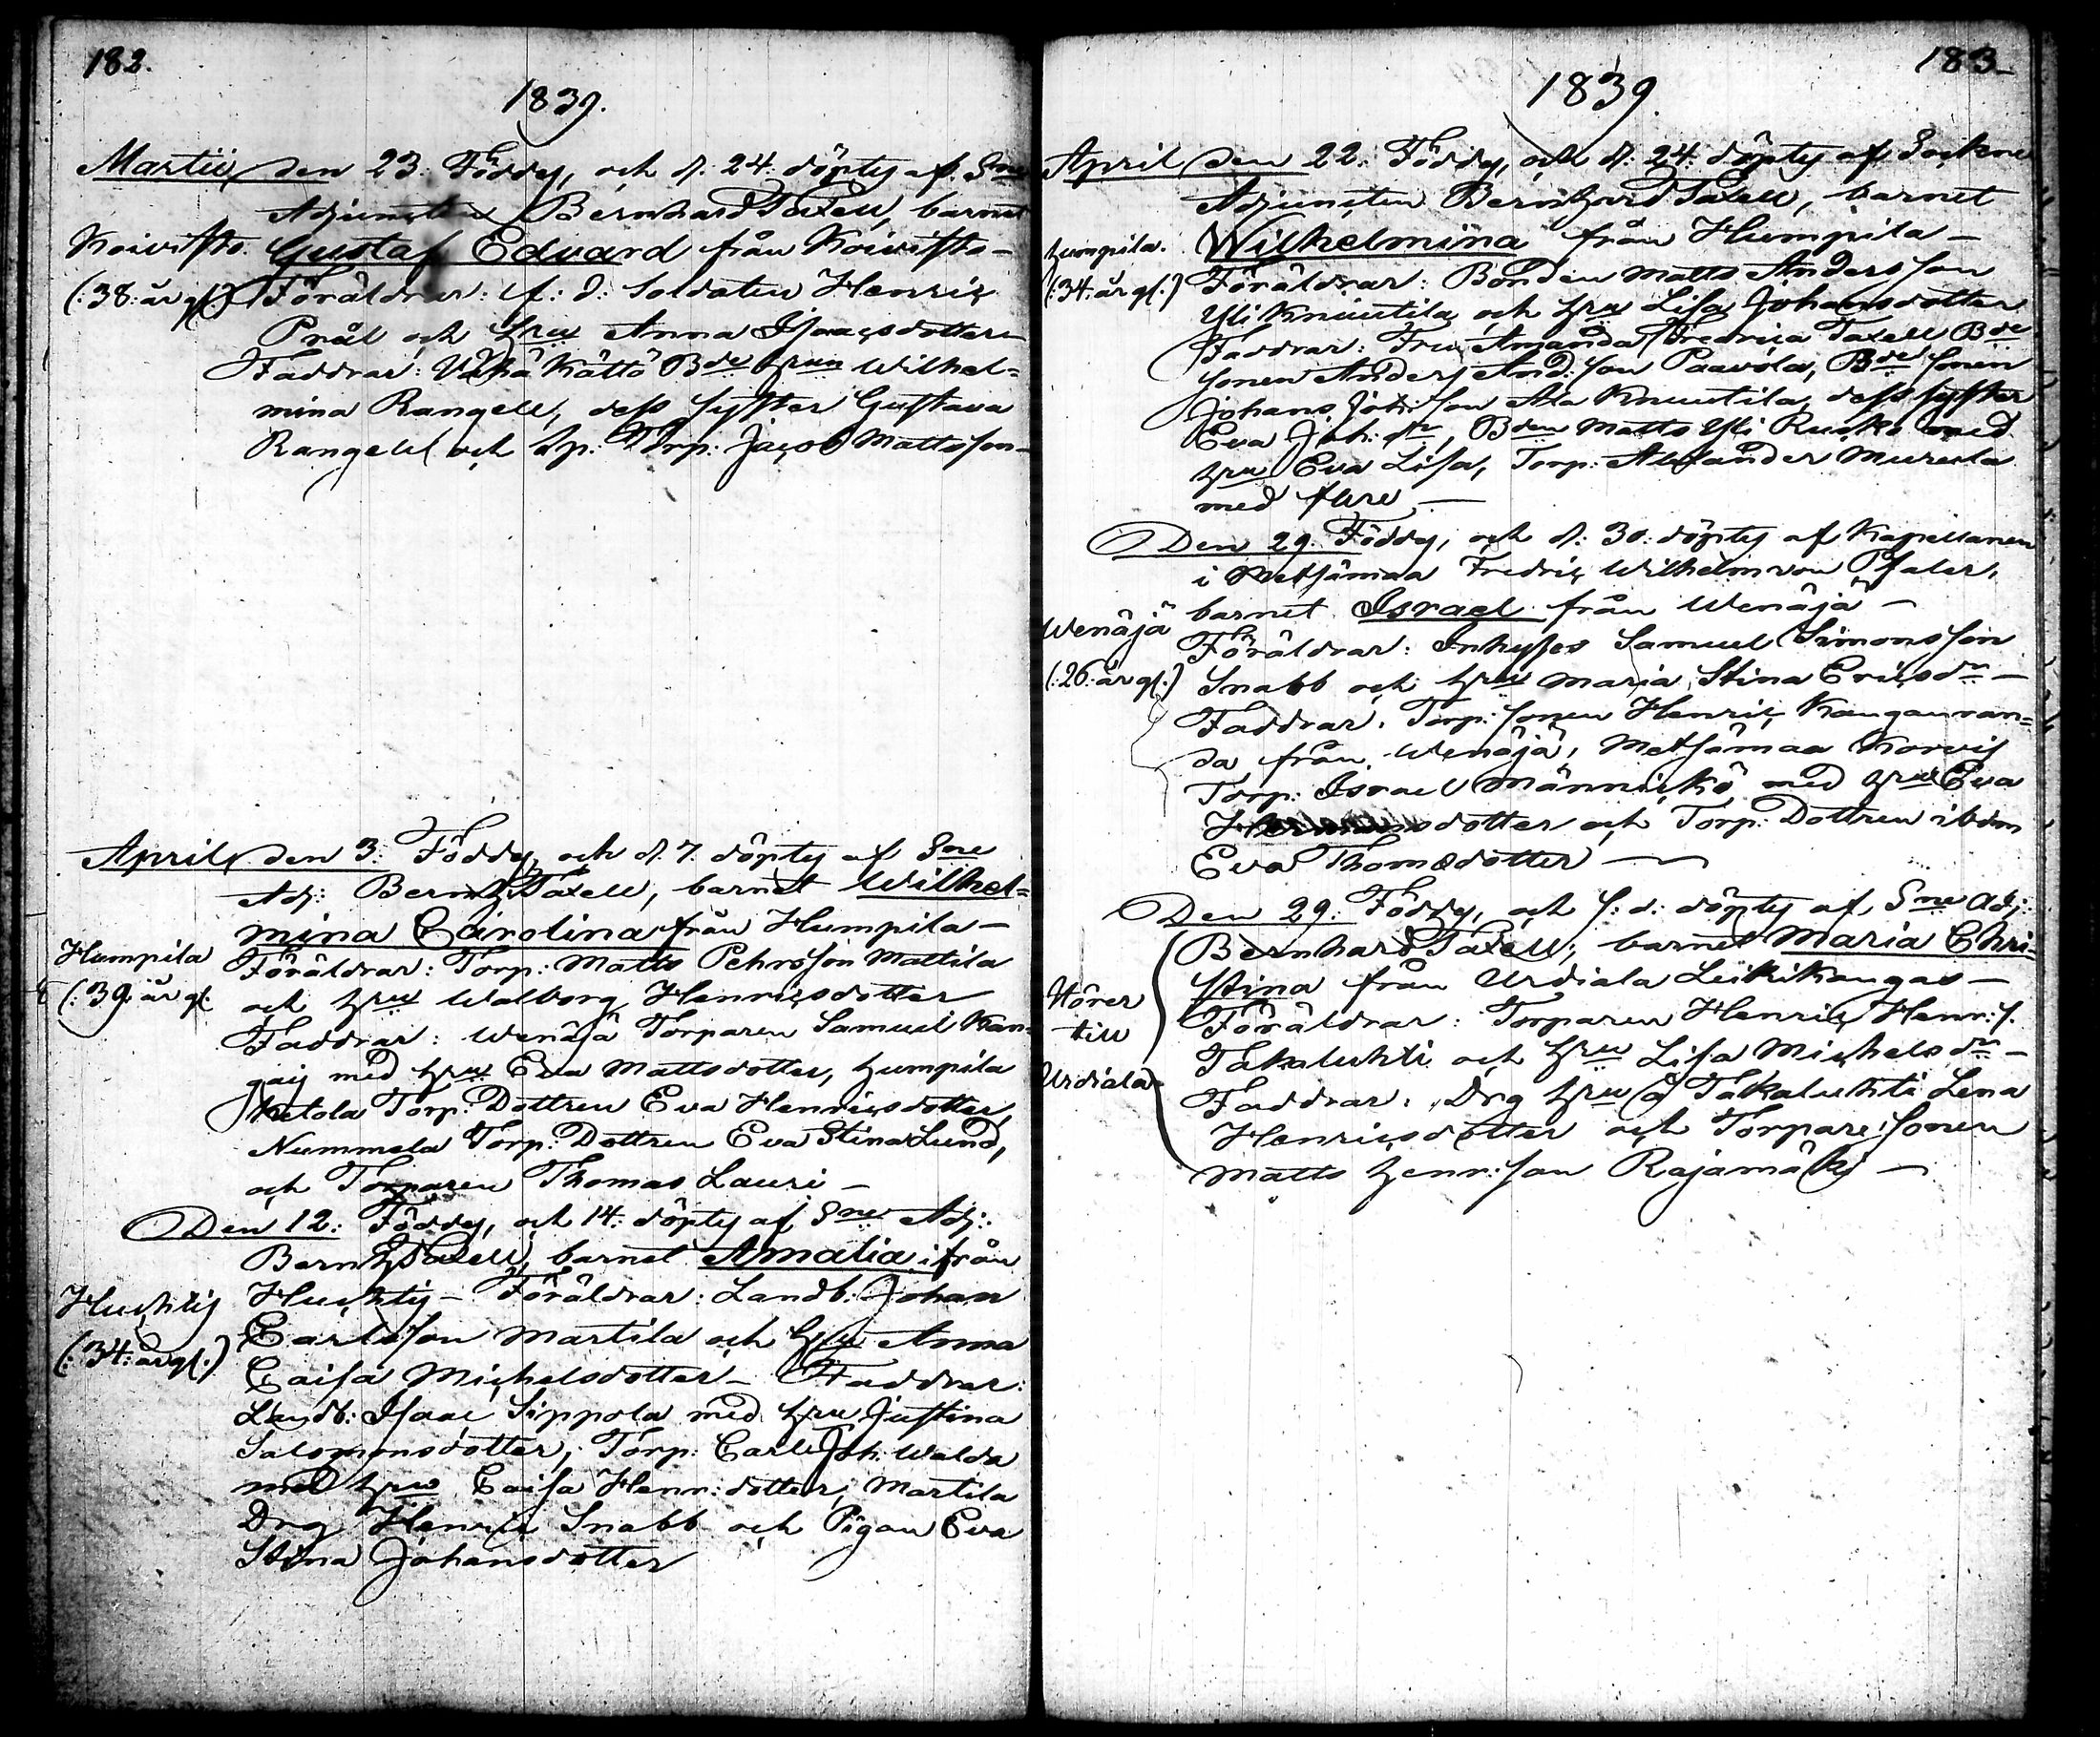 182.
1839.
Martii den 23. Föddes, och d. 24. döptes af Sne
Adjuncten Bernhard Taxell, barnet
Koivisto. Gustaf Edvard från Koivisto –
(:38: år gl:) Föräldrar: f: d: Soldaten Henric
Prål och hru Anna Isaacsdotter
Faddrar: Vähä Kättö Bde hrun Wilhel=
mina Rangell, dess syster Gustava
Rangell och hp: Torp: Jacob Mattsson –
April den 3. Föddes, och d. 7. döptes af Sne
Adj: Bernh Taxell, barnet Wilhel=
mina Carolina från Humpila –
Humpila Föräldrar: Torp: Matts Pehrsson Mattila
(:39: år gl. och hru Walborg Henricsdotter
Faddrar: Wenäjä Torparen Samuel Kan=
gais med hru Eva Mattsdotter, humpila
Ketola Torp: Dottren Eva Henricsdotter,
Nummela Torp: Dottren Eva Stina Lund,
och Torparen Thomas Lauri –
Den 12: Föddes, och 14: döptes af Sne Adj:
Bernh Taxell, barnet Amalia ifrån
Huchtis Huchtis – Föräldrar: Landb: Johan
(:34: år gl:) Carlsson Martila och hru Anna
Caisa Michelsdotter – Faddrar:
Landb: Isaac Sippola med hru Justina
Salomonsdotter, Torp: Carl Joh: Walda
med hru Caisa Henr: dotter, Martila
Drg Henric Snabb och Pigan Eva
Stina Johansdotter
183
1839.
April den 22. Föddes, och d: 24: döptes af Sockne
Adjuncten Bernhard Taxell, barnet
humpila. Wilhelmina från Humpila –
(:34: år gl:) Föräldrar: Bonden Matts Andersson
Yli Knuutila och hru Lisa Johansdotter
Faddrar: Fru Amanda Fredrica Taxell Bde
sonen Anders And: son Paavola, Bde sonen
Johans Joh: son Ala Knuutila, dess syster
Eva Joh: dr, Bden Matts Yli Rusko med
hru Eva Lisa, Torp: Alexander Murela
med flere –
Den 29. Föddes, och d: 30: döptes af Kapellanen
i Metsämaa Fredric Wilhelm von Pfaler,
Wenäjä barnet Israel från Wenäjä –
Föräldrar: Inhyses Samuel Simonsson
(:26: år gl:) Snabb och hru Maria Stina Ericsdr –
Faddrar: Torp: sonen Henric Kanganran=
da från Wenäjä, Metsämaa Korvis
Torp: Israel Männickö med hru Eva
dotter och Torp: Dottren ibdm
Eva Thomsdotter –
Den 29: Föddes, och s: d: döptes af Sne Adj:
Bernhard Taxell, barnet Maria Chri=
stina från Urdiala Leikikangas –
Hörer Föräldrar: Torparen Henric Henr: s.
till Takaluhti och hru Lisa Michelsdr –
Urdiala Faddrar: Drg hru å Takaluhti Lena
Henricsdotter och Torpare sonen
Matts henr: son Rajamäki –